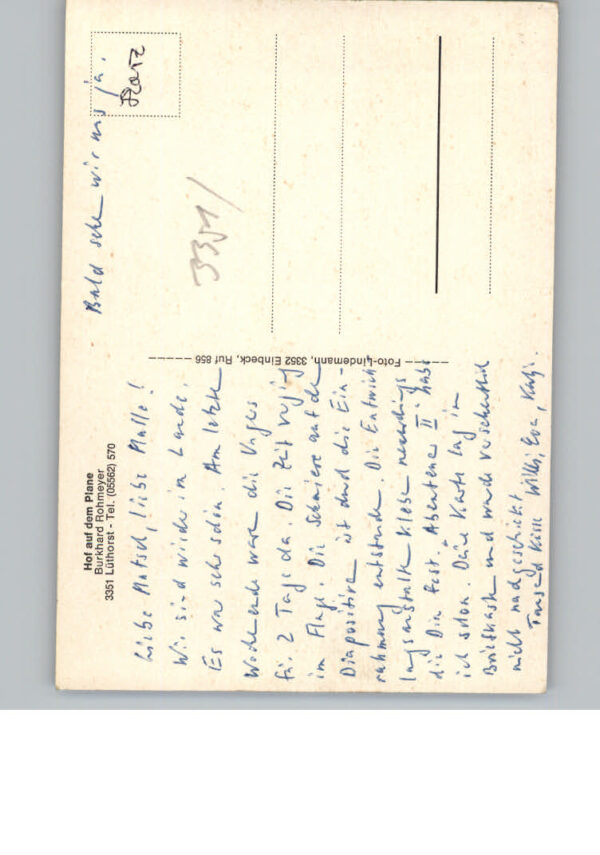 Hof auf dem Plane
Burkhard Rohmeyer
3351 Lüthorst - Tel. (05562) 570
Liebe Matsch, liebe Malle!
Wir sind wieder im Lande.
Es war sehr schön. Am letzten
Wochenende waren die
für 2 Tage da. Die Zeit verging
im Fluge. Die Schmiere auf den
Diapositiven ist durch die Ein-
rahmung entstanden. Die Entwick
lungsanstalt klebt neuerdings
die Dia fest. Abenteuer II habe
ich schon. Deine Karte lag im
Briefkasten und wurde versehentlich
nicht nachgeschickt
Tausend Küsse Willi, Eva, Katja.
Bald sehen wir uns ja.
Foto-Lindemann, 3352 Einbeck, Ruf 856
3351/
Harz